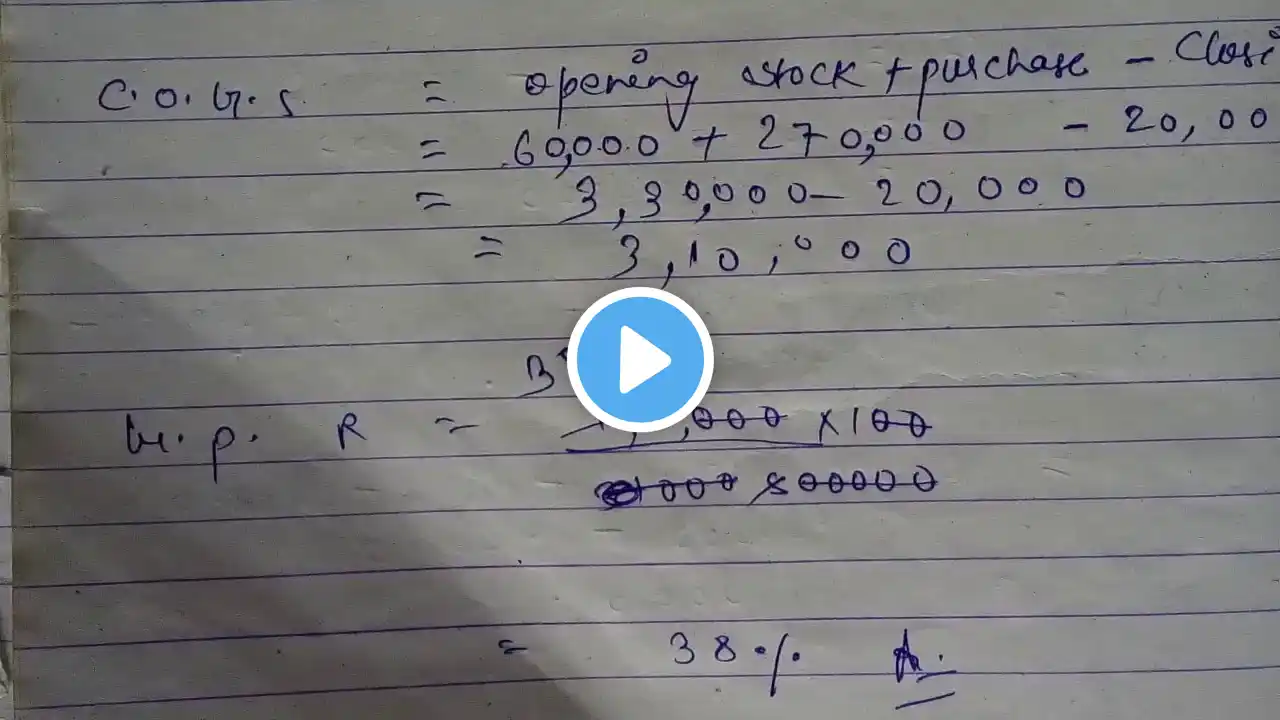 C.O.G.S = opening stock + purchase - Closi
= 60,000 + 270,000 - 20,00
= 3,30,000 - 20,000
= 3,10,000
G.P. R =
,000 x100
00000
= 38%